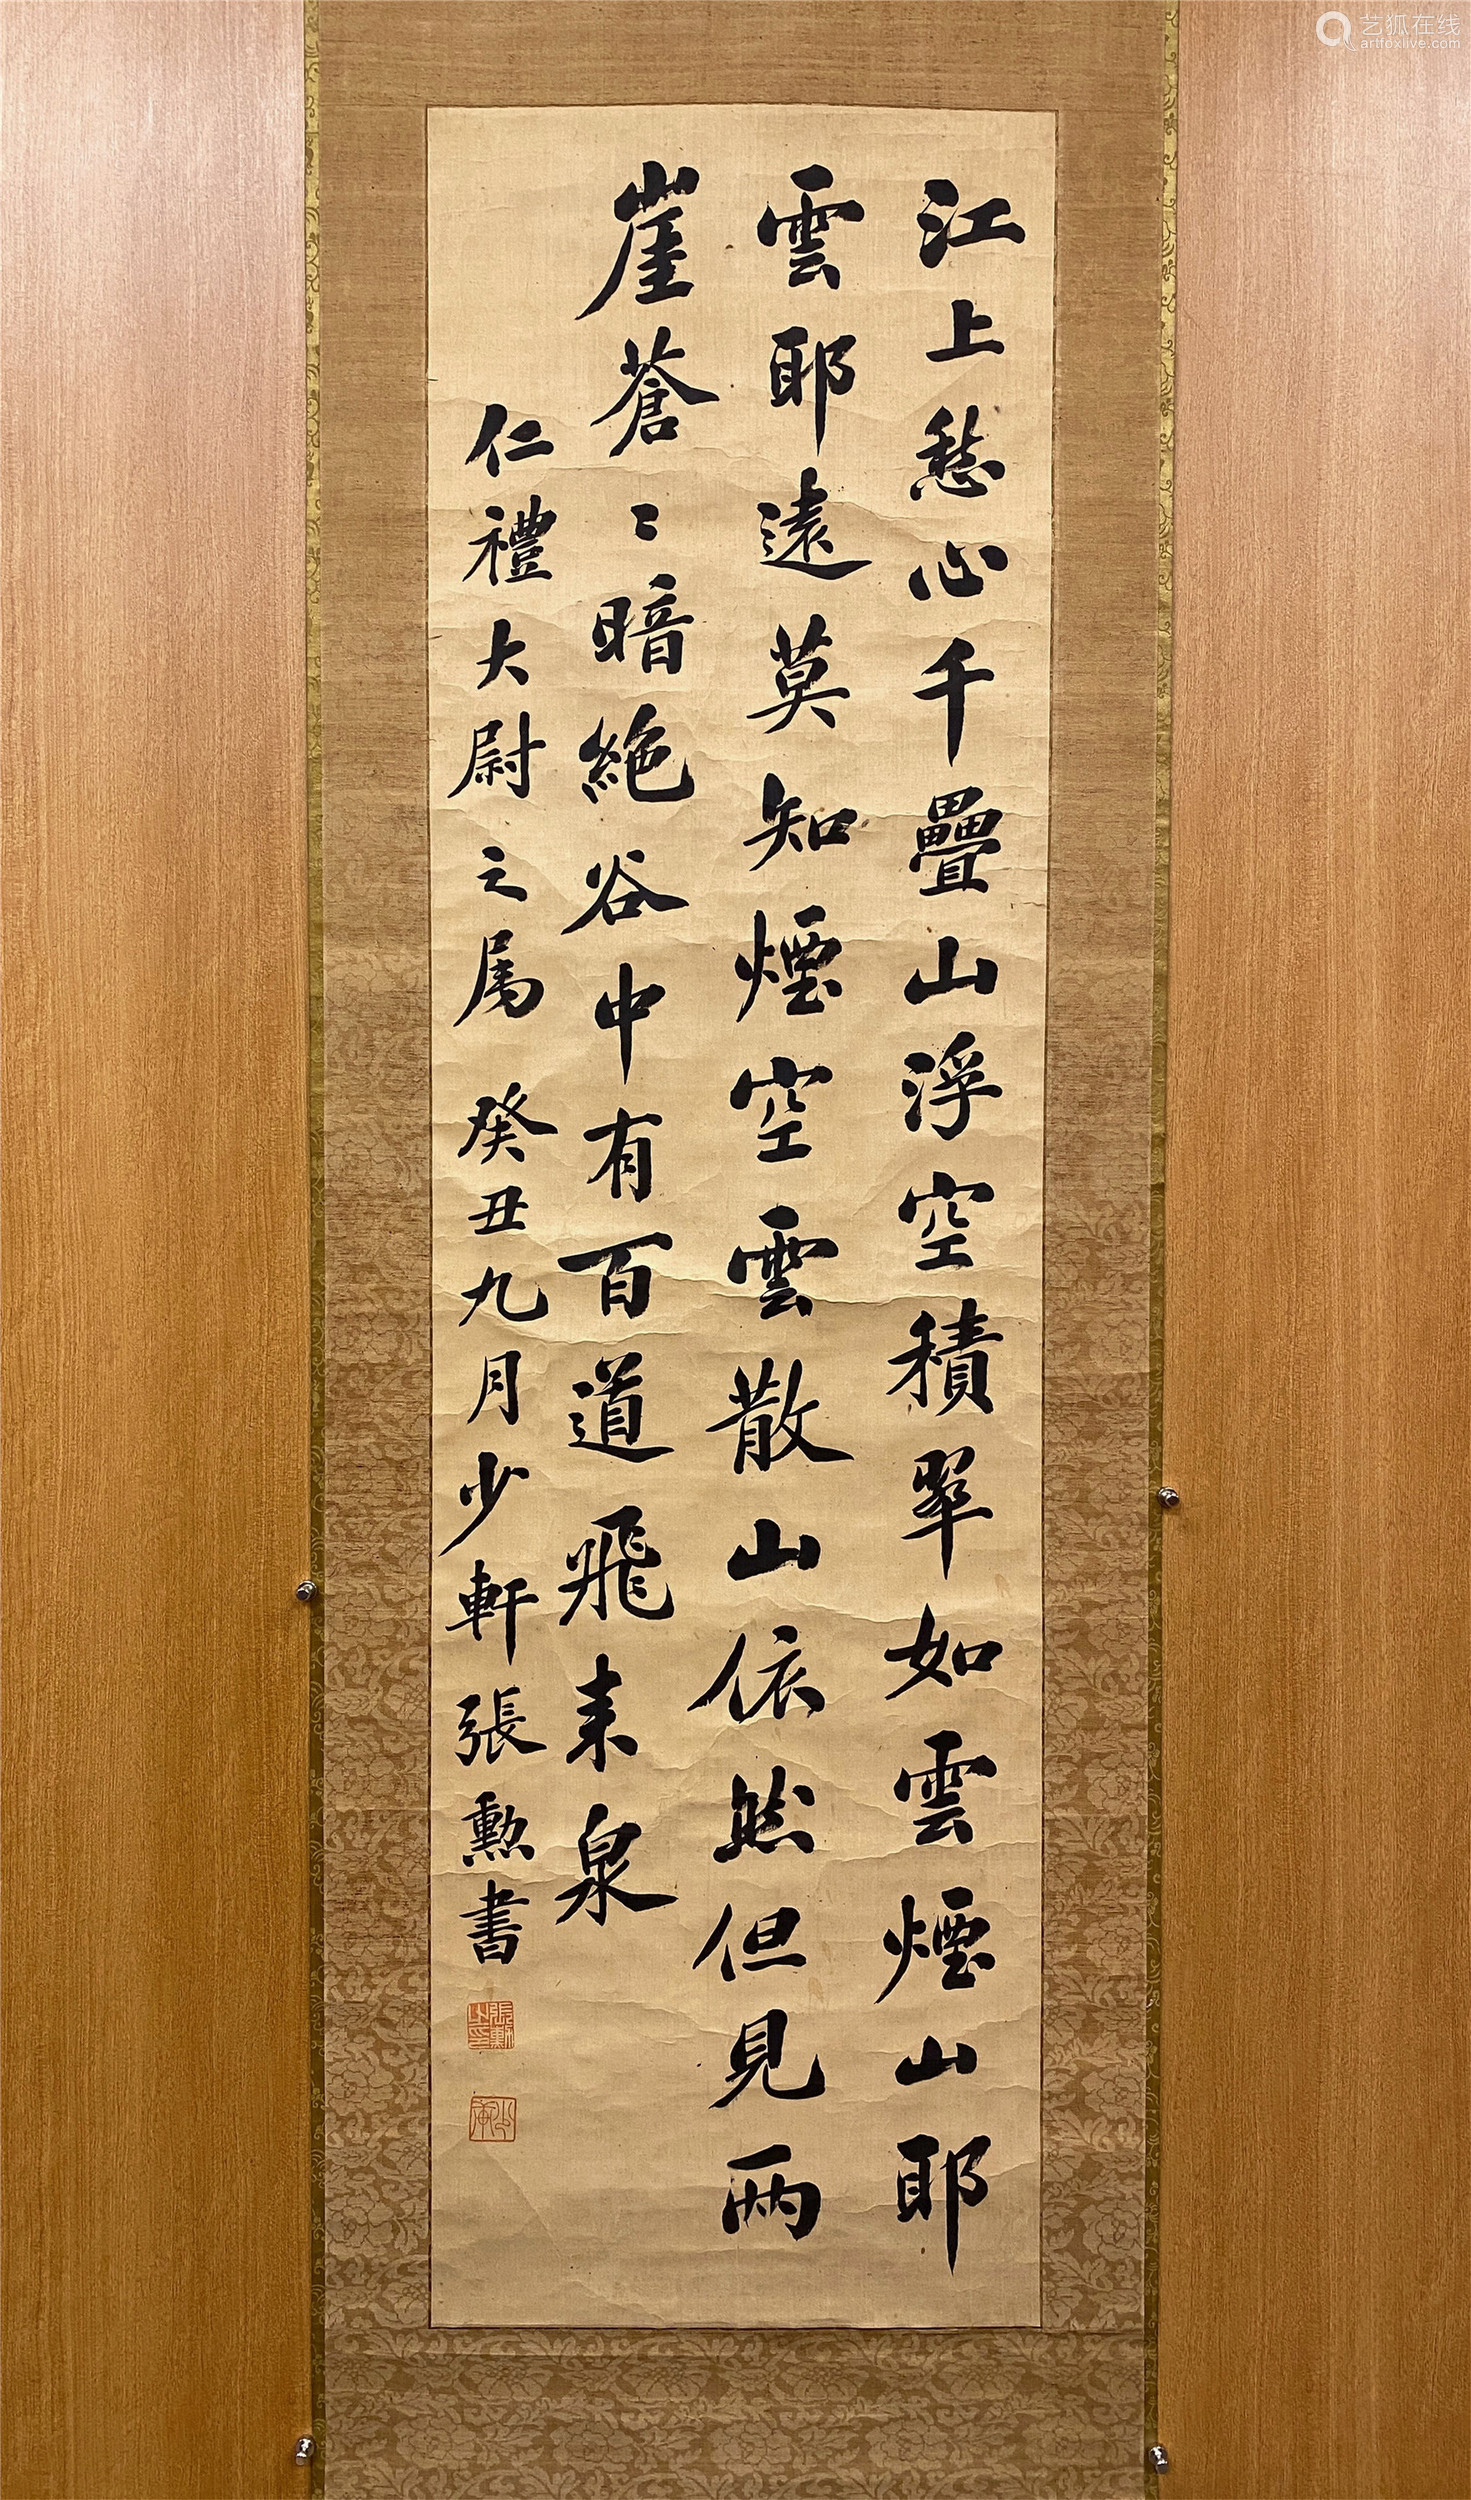 江上愁心千疊山浮空積翠如雲煙山耶
雲耶遠莫知煙空雲散山依然但見兩
崖蒼〻暗絕谷中有百道飛來泉
仁禮大尉之属 癸丑九月少軒張勲書
張勳之印
少軒
艺狐在线
artfoxlive.com